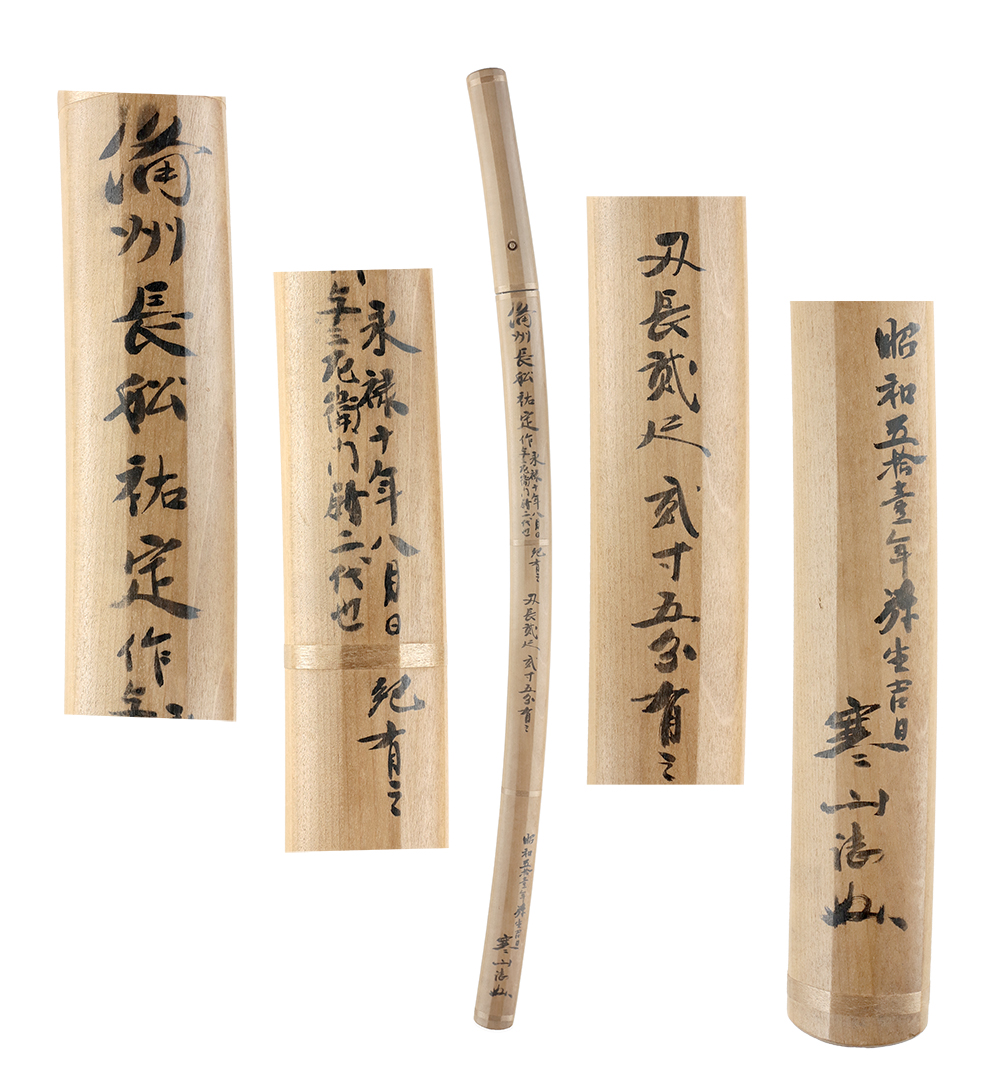 備州長舩祐定作
永禄十年八月日紀有之
与三左衛門尉二代也
刃長貳尺弐寸五分有之
昭和五拾壹年弥生吉日
寒山誌